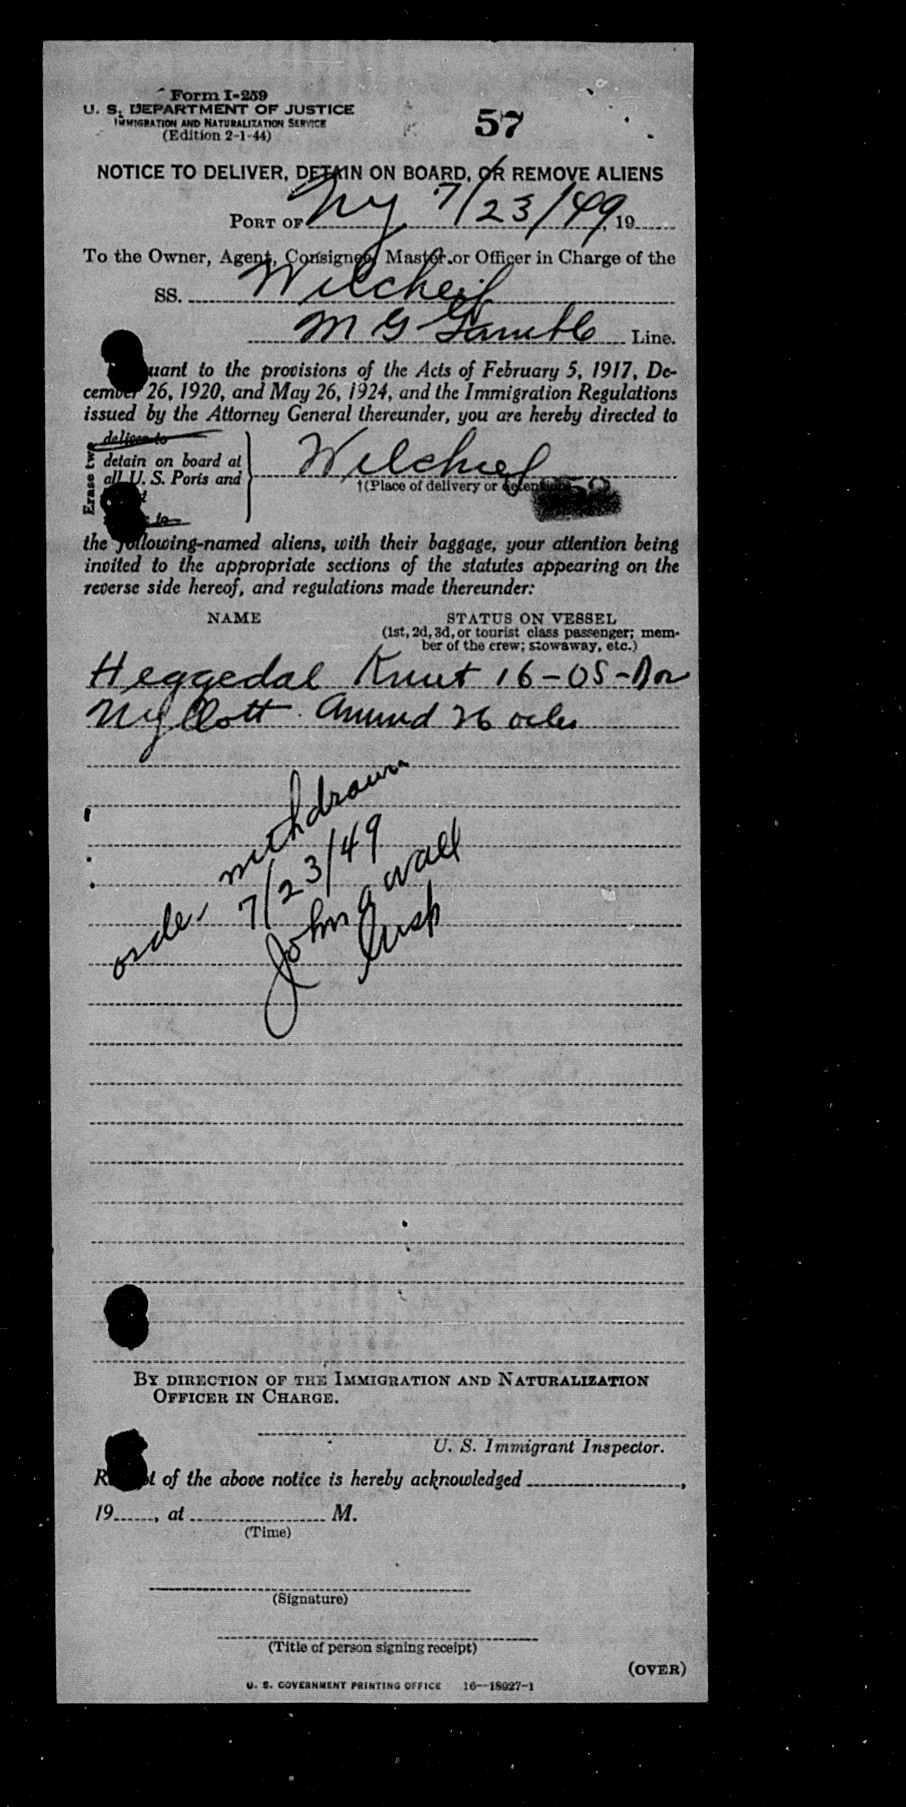 Form I-259
U. S. DEPARTMENT OF JUSTICE
IMMIGRATION AND NATURALIZATION SERVICE
(Edition 2-1-44)
57
NOTICE TO DELIVER, DETAIN ON BOARD, OR REMOVE ALIENS
PORT OF NY 7/23/49, 19
To the Owner, Agent, Consignee, Master or Officer in Charge of the
SS. Wilchief
M G Line.
uant to the provisions of the Acts of February 5, 1917, De-
cember 26, 1920, and May 26, 1924, and the Immigration Regulations
issued by the Attorney General thereunder, you are hereby directed to
Erase two
deliver to
detain on board at
all U. S. Ports and
Wilchief
†(Place of delivery or detention)
to
the following-named aliens, with their baggage, your attention being
invited to the appropriate sections of the statutes appearing on the
reverse side hereof, and regulations made thereunder:
NAME STATUS ON VESSEL
(1st, 2d, 3d, or tourist class passenger; mem-
ber of the crew; stowaway, etc.)
Heggedal Knut 16-OS-Nor
Nyllott Amund 26
order withdrawn
7/23/49
John a Wall
Insp
BY DIRECTION OF THE IMMIGRATION AND NATURALIZATION
OFFICER IN CHARGE.
U. S. Immigrant Inspector.
of the above notice is hereby acknowledged ,
19, at M.
(Time)
(Signature)
(Title of person signing receipt)
(OVER)
U. S. GOVERNMENT PRINTING OFFICE 16-18027-1